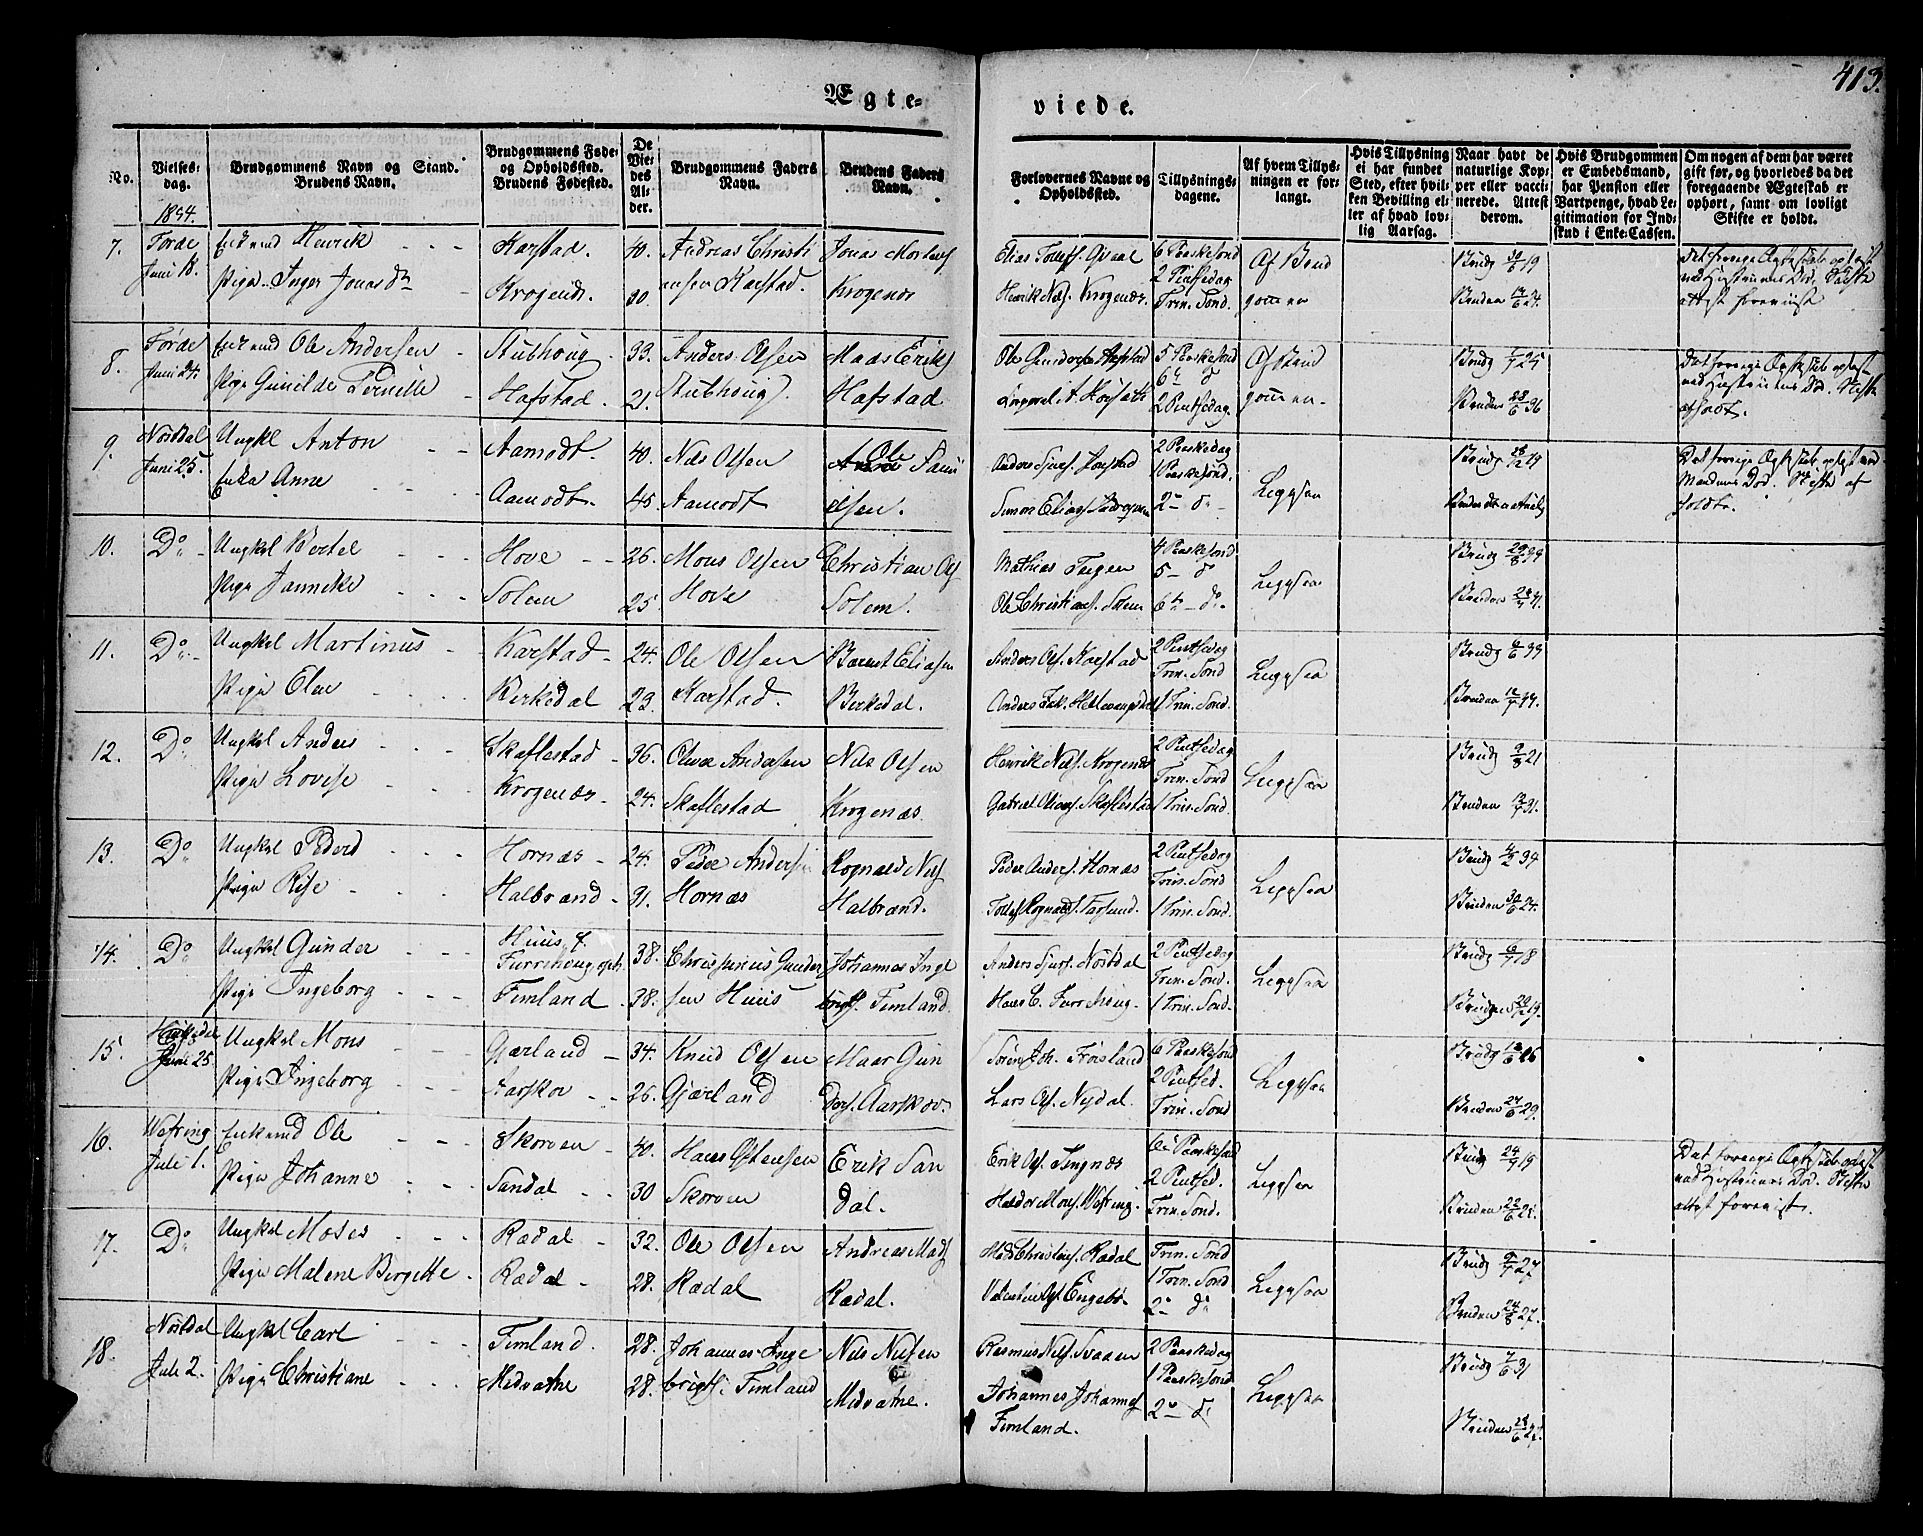 413.
Ægte=
viede.
No.
Vielses=
dag.
1854.
Brudgommens Navn og Stand.
Brudens Navn.
Brudgommens Føde=
og Opholdssted.
Brudens Fødested.
De
Vie=
des
Al=
der.
Brudgommens Faders
Navn.
Brudens Faders
Navn.
Forlovernes Navne og
Opholdssted.
Tillysnings=
dagene.
Af hvem Tillys=
ningen er for=
langt.
Hvis Tillysning
ei har fundet
Sted, efter hvil=
ken Bevilling el=
ler af hvad lov=
lig Aarsag.
Naar havt de
naturlige Kop=
per eller vacci=
nerede. Attest
derom.
Hvis Brudgommen
er Embedsmand,
har Pension eller
Vartpenge, hvad Le=
gitimation for Ind=
skud i Enke=Cassen.
Om nogen af dem har været
gift før, og hvorledes da det
foregaaende Ægteskab er
ophørt, samt om lovligt
Skifte er holdt.
7.
Førde
Juni 18.
Enkemd Henrik
Pige Inger Jonasd
Karstad.
Krogenæs.
40.
30.
Andreas Christi
ansen Karstad.
Jonas Mortens
Krogenæs
Elias Tollefs. Qvaal
Henrik Nels. Krogenæs.
6 Paaskesond
2 Pintsedag
Trin. Sond.
Af Brud
gommen
Brudg 30/6 19
Bruden 14/6 24.
Det forrige Ægteskab opløst
ved Hustruens Død. Skifte
attest foreviist
8.
Førde
Juni 24.
Enkemd Ole Andersen
Pige Gunilde Pernille
Stubhoug
Hafstad.
33.
21.
Anders Olsen
Stubhoug.
Mads Eriks
Hafstad
5 Paaskesond
6te d
2 Pintsedag
Af Brud
gommen.
Brudg 25
Bruden 28/6 36
Det forrige Ægteskab opløst
ved Hustruens Død. Skifte
afholdt.
9.
Nøstdal
Juni 25.
Ungkl Anton
Enke Anne
Aamodt.
Aamodt.
40.
45.
Nels Olsen
Aamodt
Ole Sam
elsen.
Anders Sjurs. Jorstad
2 Paaskedag
1 Paaskesond.
2 - do -
Begge
Brudg 28/12 19
Det forrige Ægteskab opløst ved
Mandens Død. Skifte af
holdt.
10.
Do
Ungkel Bertel
Pige Jannike
Hove
Solem
26.
25.
Mons Olsen
Hove
Christian Ols
Solem.
Mathias Teigen
Ole Christians. Solem
4 Paaskesond
5 - d
6te - do.
Begge
Brudg 29/8 39
Bruden 31.
11.
Do
Ungkel Martinus
Pige Elen
Karstad
Birkedal
24.
23.
Ole Olsen
Karstad.
Bernt Eliasen
Birkedal.
Anders Ols. Karstad
2 Pintsedag
Trin. Sond
1 Trin. Sond.
Begge
Brudg 6/6 39
Bruden 44.
12.
Do
Ungkel Anders
Pige Lovise
Skaflestad
Krogenæs
36.
24.
Oliver Andersen
Skaflestad
Nels Olsen
Krogenæs.
Henrik Nels. Krogenæs
Gabriel Olivers. Skaflestad
2 Pintsedag
Trin. Sond
1 Trin. Sond.
Begge
Brudg 9/8 21
Bruden 31.
13.
Do
Ungkel Peder
Pige Rise
Hornæs
Halbrand
24.
31.
Peder Andersen
Hornæs
Rognald Nels
Halbrand.
Peder Anders. Hornæs
2 Pintsedag
Trin. Sond
1 Trin. Sond.
Begge
Brudg 34
Bruden 30/6 24.
14.
Do
Ungkel Gunder
Pige Ingeborg
Huus f.
Furrehoug oph.
Fimland
38.
38.
Chrispinus Gunder
sen Huus
Johannes Inge
brigts. Fimland.
Anders Sjurs. Nøstdal
Hans C. Furrehoug.
2 Pintsedag
Trin. Sond.
1 Trin. Sond.
Begge
Brudg 18
Bruden 19.
15.
Juni 25.
Ungkel Mons
Pige Ingeborg
Gjærland
Aarskov
34.
26.
Knud Olsen
Gjærland
Maar Gun
ders. Aarskov.
Søren Joh. Frøisland
Lars Ols. Nydal.
6 Paaskesond
2 Pintsed.
Trin. Sond
Begge
Brudg 26
Bruden 24/6 29.
16.
Wefring
Juli 1.
Enkemd Ole
Pige Johanne
Skorven
Sandal
40.
30
Hans Ystensen
Skorven
Erik San
dal.
Erik Ols. Tingnæs
Haldor Mons. Wefring.
6te Paaskesond
2 Pintsed.
Trin. Sond.
Begge
Brudg 24/9 19
Bruden 22/6 22.
Det forrige Ægteskab opløst
ved Hustruens Død. Skifte
attest foreviist.
17.
Do
Ungkel Moses
Pige Malene Bergitte
Rædal
Rædal
32.
28.
Ole Olsen
Rædal
Andreas Mads
Rædal.
Mads Christens. Rædal
Valentin Ols. Engebø
Trin. Sond
1 Trin. Sond
2 - do
Begge
Brudg 27
Bruden 24/8 27.
18.
Nøstdal
Juli 2.
Ungkel Carl
Pige Christiane
Fimland.
Midvatne
28.
28.
Johannes Inge
brigts. Fimland
Nils Nilsen
Midvatne.
Rasmus Nels. Svaaen
Johannes Johannes
Fimland.
2 Paaskedag
1 Paaskesond
2 - d
Begge
Brudg 7/6 31
Bruden 28/6 27.